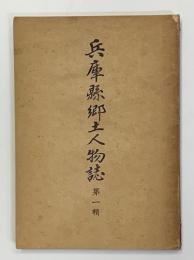 兵庫縣郷土人物誌
第一輯